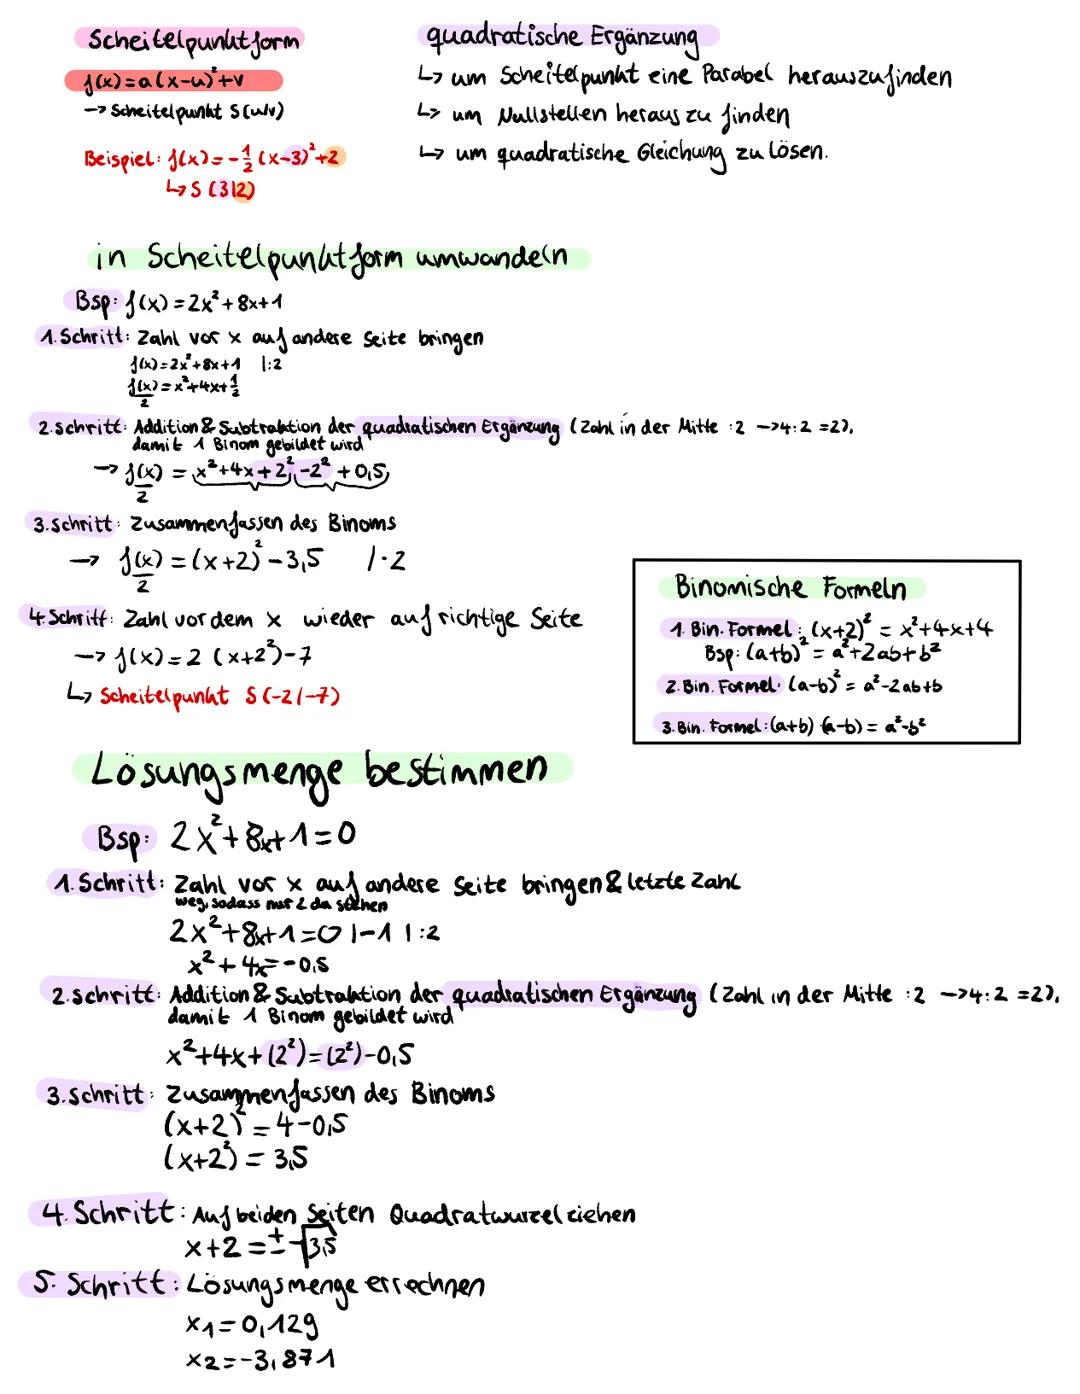 Scheitelpunktform
f(x)=a(x-u)²+v
→ Scheitelpunkt S(u/v)
Beispiel: f(x)=-½(x-3)²+2
↳ S (3|2)
quadratische Ergänzung
↳ um Scheitelpunkt eine Parabel herauszufinden
↳ um Nullstellen heraus zu finden
↳ um quadratische Gleichung zu lösen.
in Scheitelpunktform umwandeln
Bsp: f(x)=2x²+8x+1
1. Schritt: Zahl vor x auf andere Seite bringen
f(x)=2x²+8x+1 |:2
f(x)/2=x²+4x+½
2. Schritt: Addition & Subtraktion der quadratischen Ergänzung (Zahl in der Mitte :2 →4:2=2),
damit 1 Binom gebildet wird
→ f(x)/2 = x²+4x+2²-2²+0,5
3. Schritt: Zusammenfassen des Binoms
→ f(x)/2 = (x+2)²-3,5 |·2
4. Schritt: Zahl vor dem x wieder auf richtige Seite
→ f(x)=2 (x+2²)-7
↳ Scheitelpunkt S(-2/-7)
Binomische Formeln
1. Bin. Formel: (x+2)² = x²+4x+4
Bsp: (a+b)² = a²+2ab+b²
2. Bin. Formel: (a-b)² = a²-2ab+b
3. Bin. Formel: (a+b) (a-b) = a²-b²
Lösungsmenge bestimmen
Bsp: 2x²+8x+1=0
1. Schritt: Zahl vor x auf andere Seite bringen & letzte Zahl
weg, sodass nur 2 da stehen
2x²+8x+1=0 |-1 |:2
x²+4x=-0,5
2. Schritt: Addition & Subtraktion der quadratischen Ergänzung (Zahl in der Mitte :2 →4:2=2),
damit 1 Binom gebildet wird
x²+4x+(2²)=(2²)-0,5
3. Schritt: Zusammenfassen des Binoms
(x+2)² = 4-0,5
(x+2²) = 3,5
4. Schritt: Auf beiden Seiten Quadratwurzel ziehen
x+2 = ±√3,5
5. Schritt: Lösungsmenge errechnen
x1=0,129
x2=-3,871